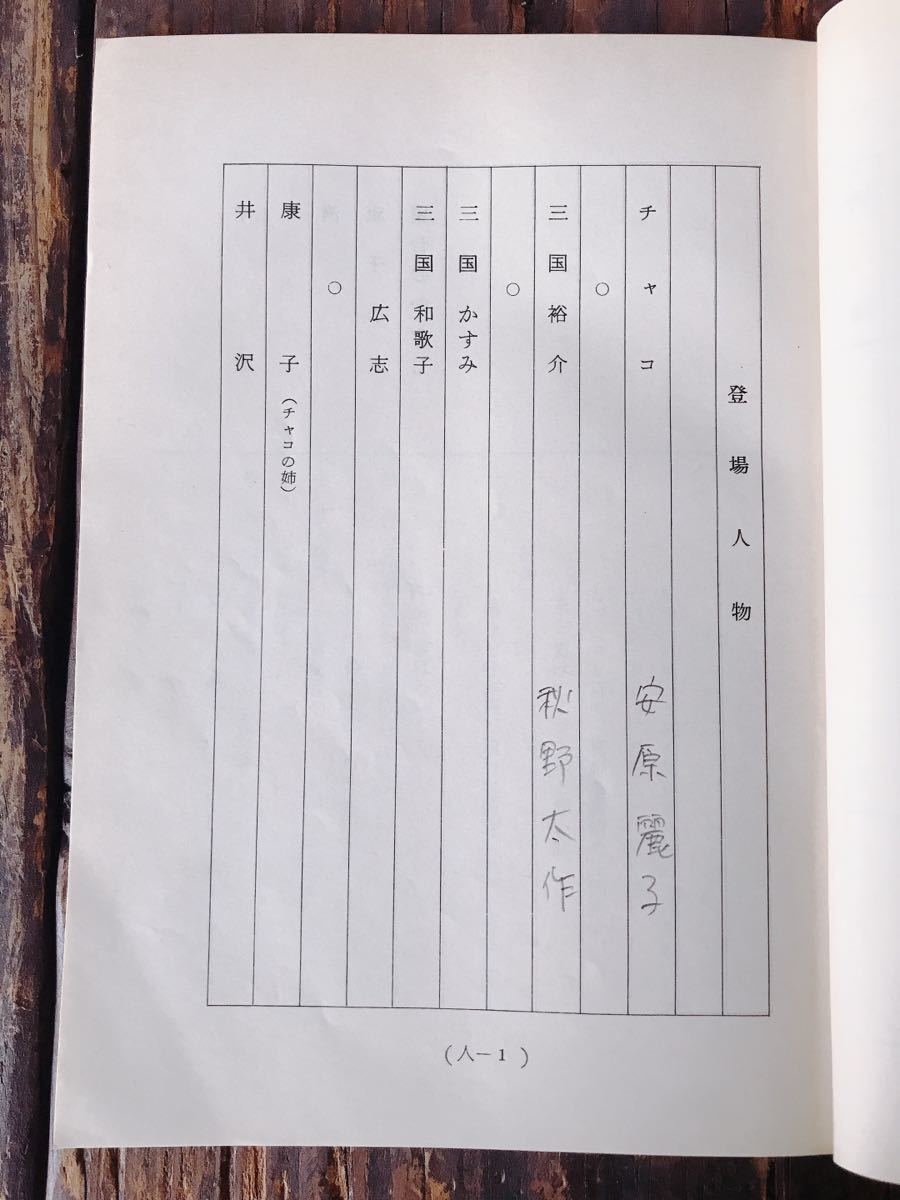 登場人物
チャコ 安原麗子
○
三国裕介 秋野太作
○
三国かすみ
三国和歌子
広志
○
康子(チャコの姉)
井沢
(人-1)